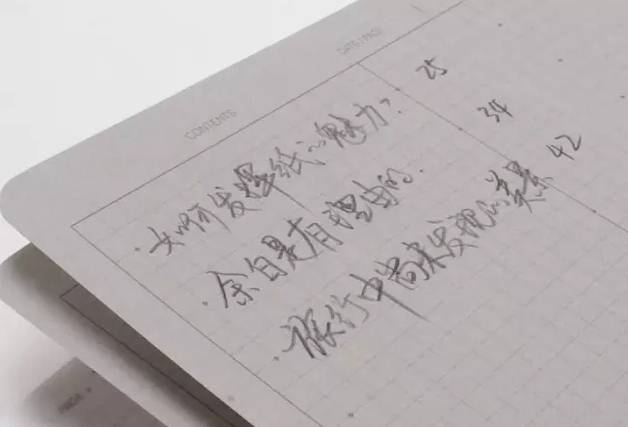 DATE / PAGE
CONTENTS
·如何发挥纸的魅力? 25
·余白是有理由的. 34
·旅行中尚未发现的美景 42